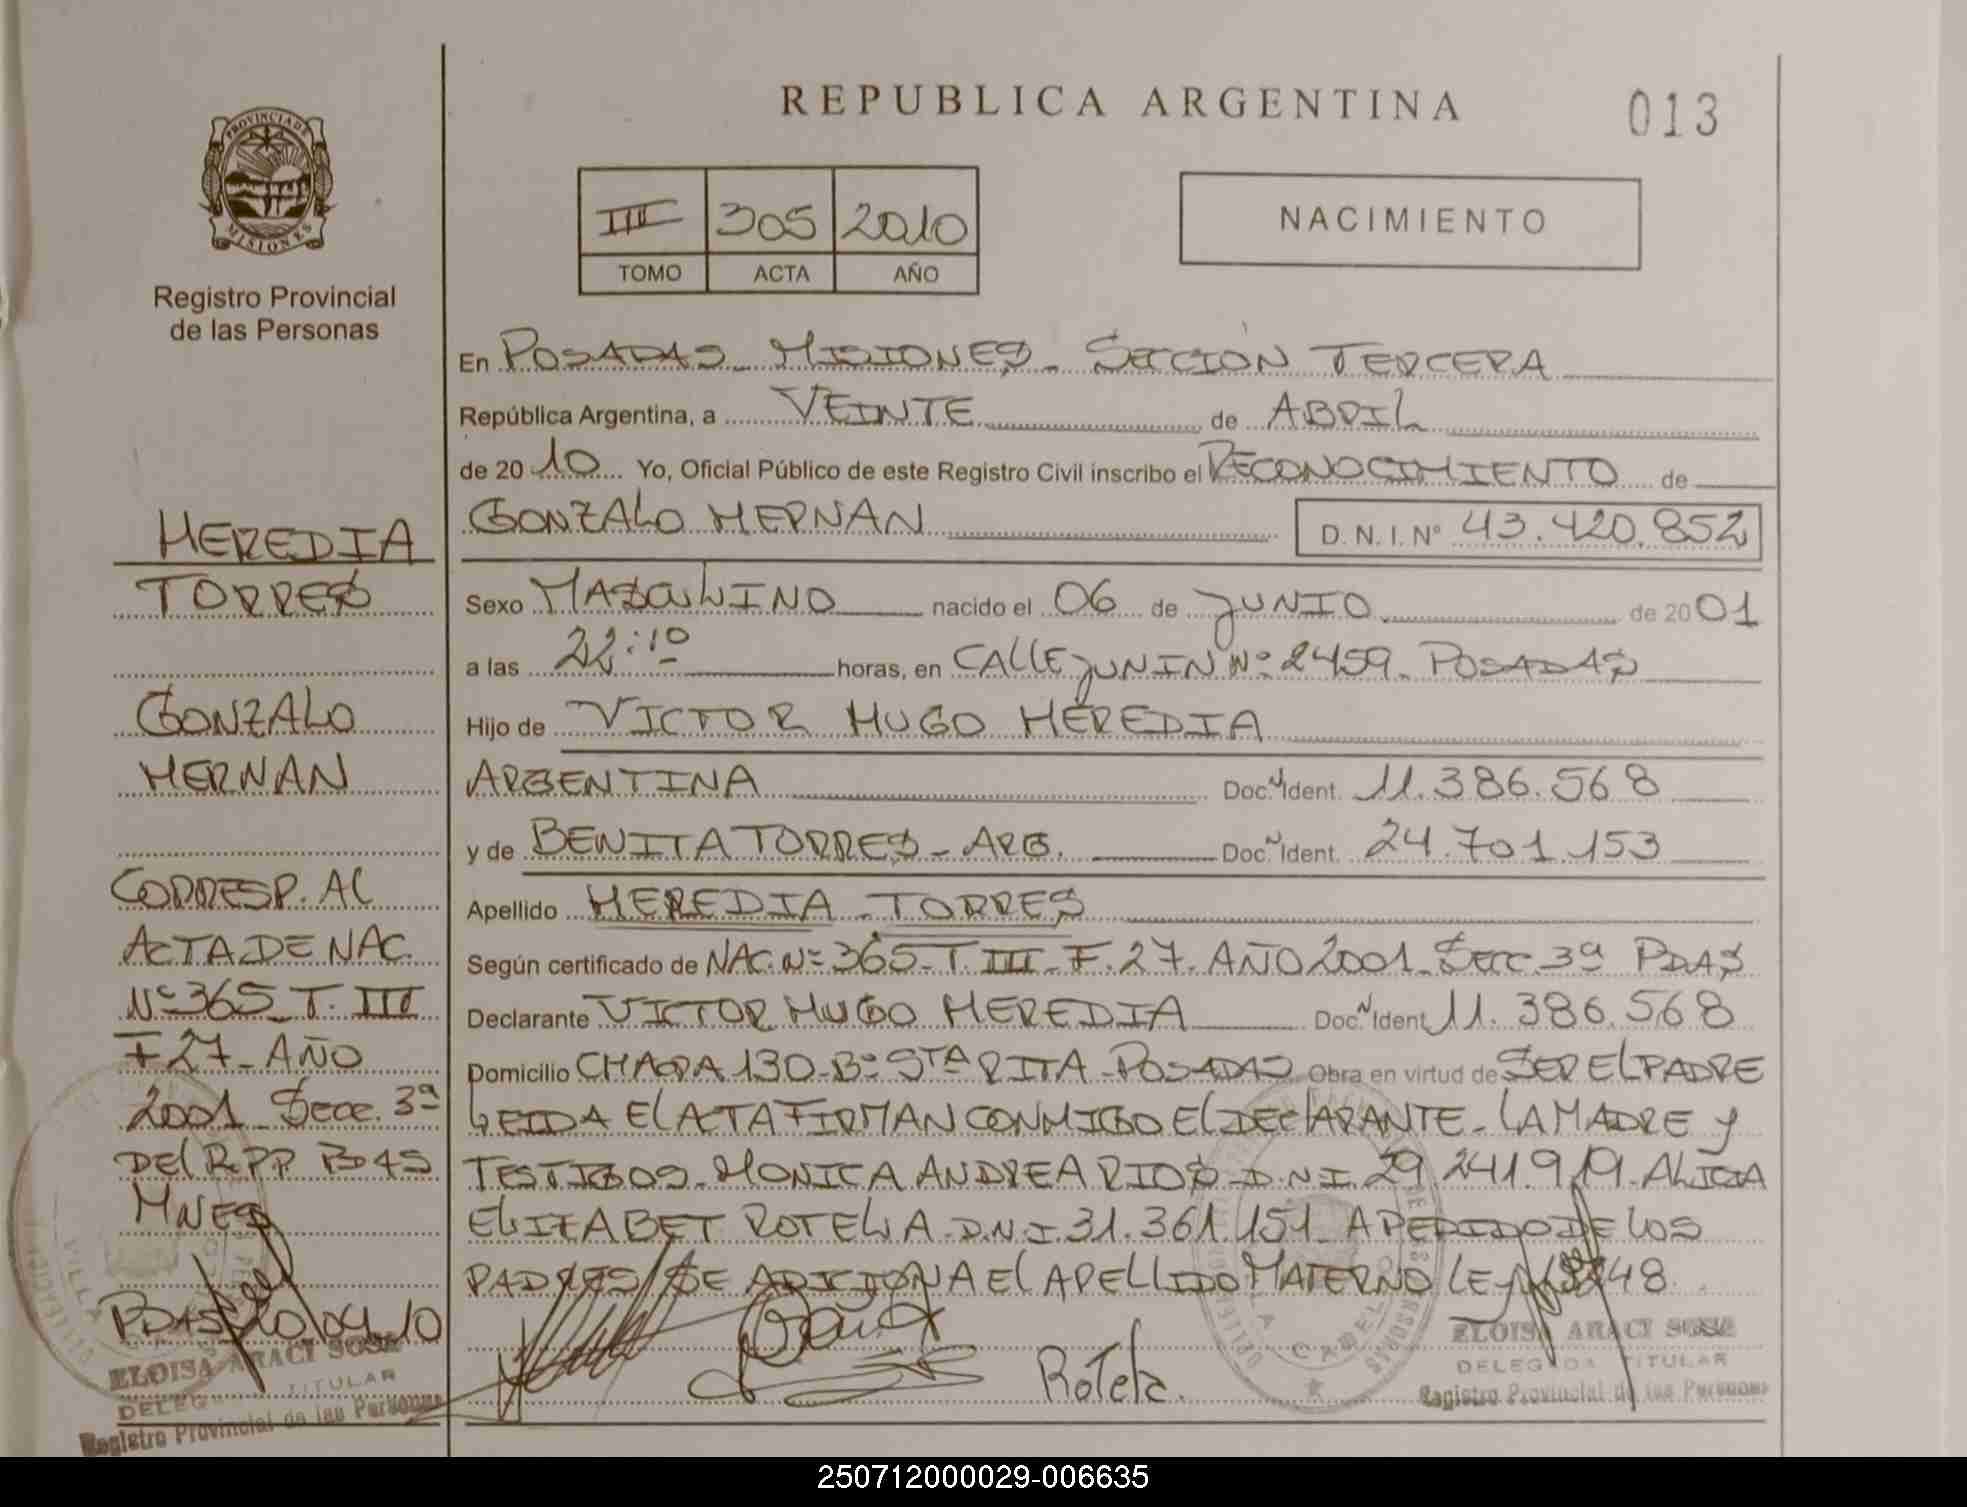 REPUBLICA ARGENTINA
013
PROVINCIA DE
MISIONES
Registro Provincial
de las Personas
III 305 2010
TOMO ACTA AÑO
NACIMIENTO
En POSADAS - MISIONES - SECCION TERCERA
República Argentina, a VEINTE de ABRIL
de 20 10 Yo, Oficial Público de este Registro Civil inscribo el RECONOCIMIENTO de
GONZALO HERNAN D. N. I. Nº 43.420.852
Sexo MASCULINO nacido el 06 de JUNIO de 2001
a las 22:10 horas, en CALLE JUNIN Nº 2459 - POSADAS
Hijo de VICTOR HUGO HEREDIA
ARGENTINA Doc. N Ident. 11.386.568
y de BENITA TORRES - ARG. Doc. N Ident. 24.701.153
Apellido HEREDIA - TORRES
Según certificado de NAC. Nº 365 - T. III - F. 27 - AÑO 2001 - SECC. 3ª PDAS
Declarante VICTOR HUGO HEREDIA Doc. N Ident 11.386.568
Domicilio CHACRA 130 - Bº STA RITA - POSADAS Obra en virtud de SER EL PADRE
LEIDA EL ACTA FIRMAN CONMIGO EL DECLARANTE - LA MADRE Y
TESTIGOS - MONICA ANDREA RIOS D.N.I. 29.241.919 - ALICIA
ELIZABET ROTELA D.N.I. 31.361.151 A PEDIDO DE LOS
PADRES SE ADICIONA EL APELLIDO MATERNO LEY 18248
Rotela.
ELOISA ARACI SOSA
DELEGADA TITULAR
Registro Provincial de las Personas
HEREDIA
TORRES
GONZALO
HERNAN
CORRESP. AL
ACTA DE NAC.
Nº 365 - T. III
F 27 - AÑO
2001 - Secc. 3ª
DEL R.P.P. PDAS
MNES
PDAS 20/04/10
ELOISA ARACI SOSA
DELEG TITULAR
Registro Provincial de las Personas
250712000029-006635